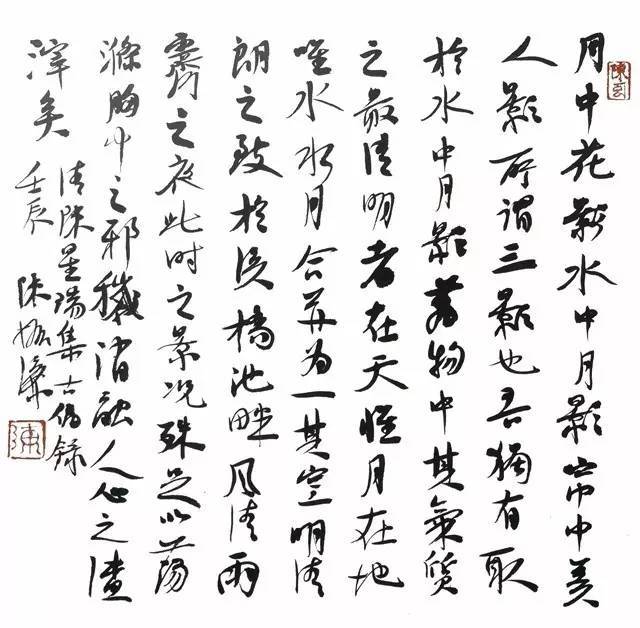 月中花影水中月影帘中美
人影所謂三影也吾獨有取
於水中月影萬物中其氣質
之最清明者在天惟月在地
唯水水月合并为一其空明清
朗之致於溪橋池畔风清雨
霽之夜此时之景况殊足以蕩
滌胸中之邪穢消融人心之渣
滓矣
清陳星瑞集古偶錄
壬辰 陳振濂
陳